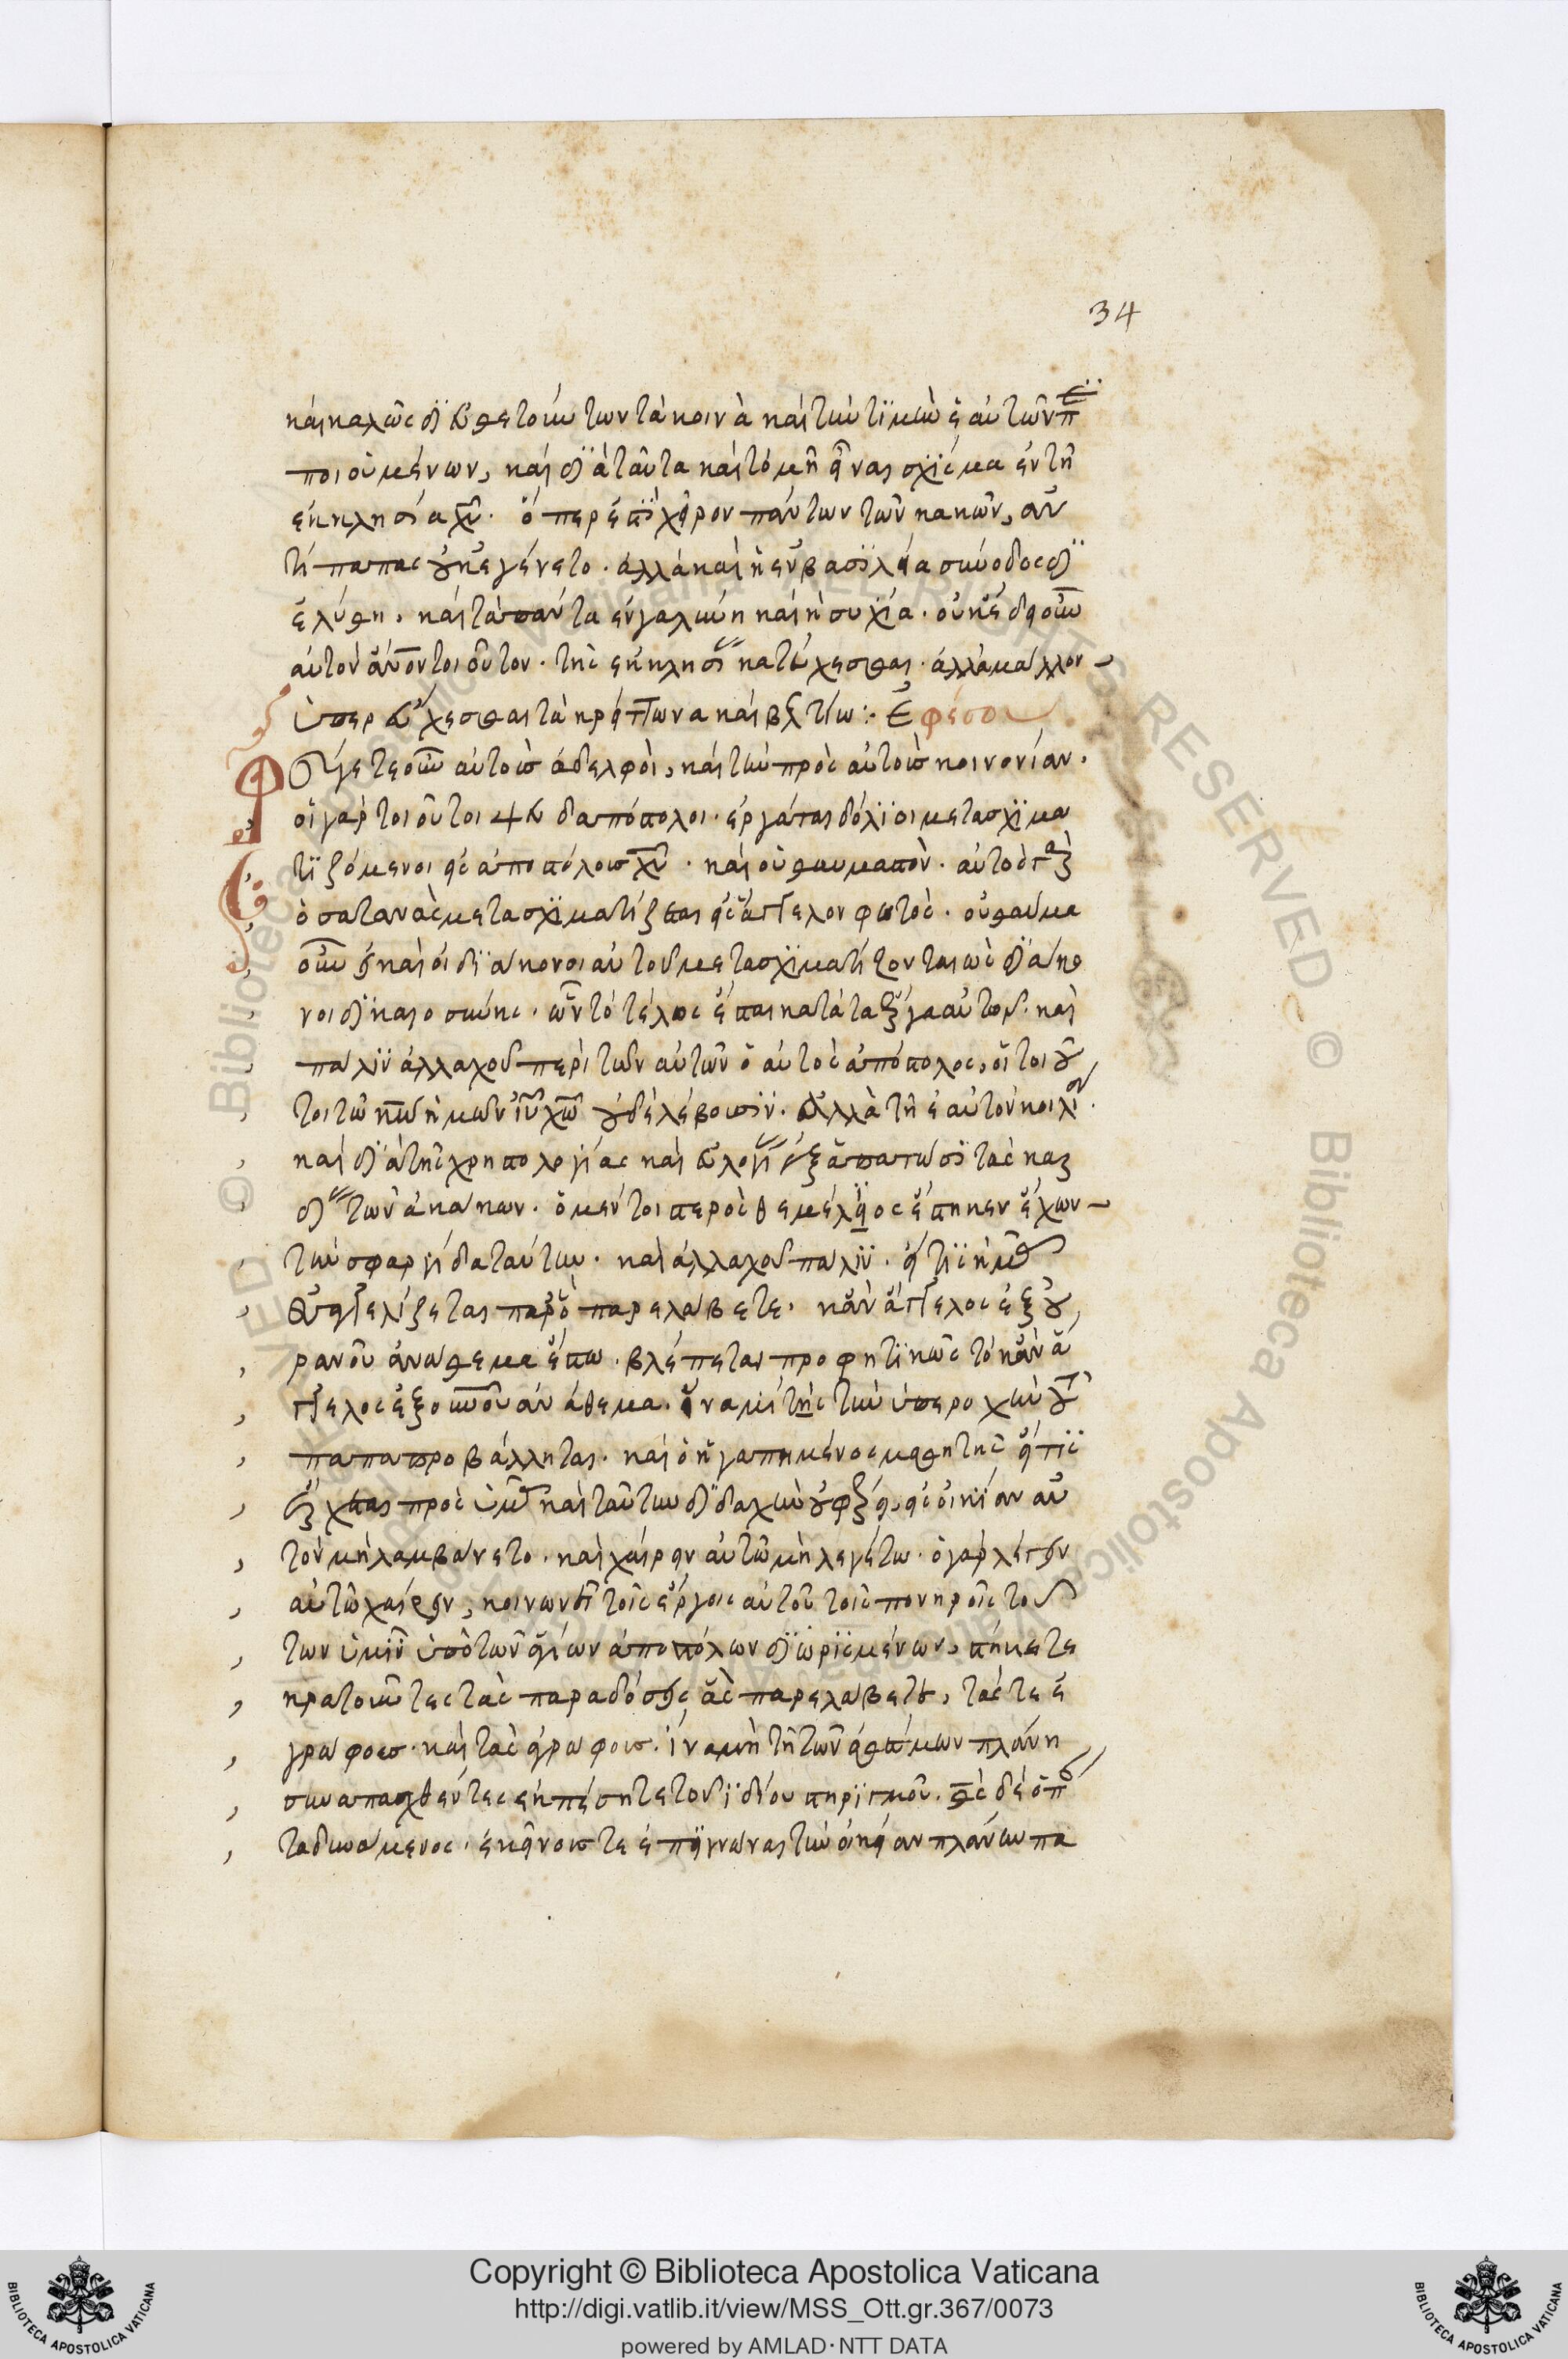 34
καὶ καλῶς διευθετούντων τὰ κοινὰ καὶ τὴν τϊμὴν ἑαυτῶν
ποιουμένων, καὶ διὰ ταῦτα καὶ τὸ μὴ εἶναι σχίσμα ἐν τῇ
ἐκκλησία χῦ. ὅπερ ἐστὶ χεῖρον πάντων τῶν κακῶν, ἂν
τί παπας οὐκ ἐγένετο. ἀλλὰ καὶ ἡ ἐν βασϊλεία σύνοδος δϊ
ελύθη, καὶ τὰ πάντα ἐν γαλήνη καὶ ἡσυχία. οὐκ ἔδει οὖν
αὐτὸν τοιοῦτον. τῆς ἐκκλησί κατεύχεσθαι. ἀλλὰ μᾶλλον
ὑπερεύχεσθαι τὰ κρείττωνα καὶ βελτίω :· Ἐφέσου
Φεύγετε οὖν αὐτοὺς ἀδελφοὶ, καὶ τὴν πρὸς αὐτοὺς κοινονίαν.
οἱ γὰρ τοιοῦτοι ψευδαπόστολοι. ἐργάται δόλϊοι μετασχϊμα
τϊζόμενοι εἰς ἀποστόλους χῦ. καὶ οὐ θαυμαστὸν. αὐτὸς γὰρ
ὁ σατανὰς μετασχϊματίζεται εἰς ἄγγελον φωτὸς. οὐ θαῦμα
οὖν εἰ καὶ οἱ δϊάκονοι αὐτοῦ μετασχϊματίζονται ὡς δϊάκο
νοι δϊκαιοσύνης. ὧν τὸ τέλος ἔσται κατὰ τὰ ἔργα αὐτῶν. καὶ
πάλϊν ἀλλαχοῦ περὶ τῶν αὐτῶν ὁ αὐτὸς ἀπόστολος, οἱ τοιοῦ
τοι τῷ κω ἡμῶν ιυ χω οὐ δουλεύουσϊν. ἀλλὰ τῆ ἑαυτόν κοιλί
καὶ δϊὰ τῆς χρηστολογίας καὶ εὐλογί ἐξαπατῶσϊ τὰς καρ
δί τῶν ἀκάκων. ὁ μέντοι στερεὸς θεμέλϊος ἕστηκεν ἔχων
τὴν σφραγίδα ταύτην. καὶ ἀλλαχοῦ πάλϊν. εἴ τϊς ἡμᾶς
εὐαγγελίζεται παρ' ὃ παρελάβετε. κἂν ἄγγελος ἐξ οὐ
ρανοῦ ἀνάθεμα ἔστω. βλέπεται προφητϊκῶς τὸ κἂν ἄ
γγελος ἐξ οὐνοῦ ἀνάθεμα. ἵνα μή τὶς τὴν ὑπεροχὴν τοῦ
παπα προβάλληται. καὶ ὁ ἠγαπημένος μαθητὴς εἴ τϊς
ἔρχεται πρὸς ὑμᾶς καὶ ταύτην δϊδαχὴν οὐ φέρει, εἰς οἰκίαν αὐ
τὸν μὴ λαμβάνετο. καὶ χαίρειν αὐτῷ μὴ λεγέτω. ὁ γὰρ λέγων
αὐτῷ χαίρειν, κοινωνεῖ τοῖς ἔργοις αὐτοῦ τοῖς πονηροῖς τού
των ὑμῖν ὑπὸ τῶν ἁγίων ἀποστόλων δϊωρϊσμένων, στήκετε
κρατοῦντες τὰς παραδόσεις ἃς παρελάβετε, τάς τε ἐ
γράφους. καὶ τὰς ἀγράφους. ἵνα μὴ τῆ τῶν ἀθέσμων πλάνη
συναπαχθέντες ἐκπέσητε τοῦ ϊδίου στηρϊγμοῦ. θς δὲ ὁ παν
ταδυνάμενος. ἐκείνους τε ἐπϊγνῶναι τὴν οἰκείαν πλάνην πα
Copyright © Biblioteca Apostolica Vaticana
http://digi.vatlib.it/view/MSS_Ott.gr.367/0073
powered by AMLAD·NTT DATA